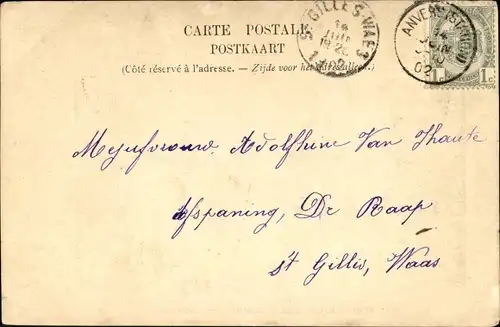 CARTE POSTALE
POSTKAART
(Côté réservé à l'adresse. — Zijde voor het adres alleen.)
ST GILLES-WAES
14
JUIN
1902
ANVERS
14
JUIN
02
1c 1c
Mejufvrouw. Adolfhine Van Thante
Afspaning, De Raap
St Gillis, Waas